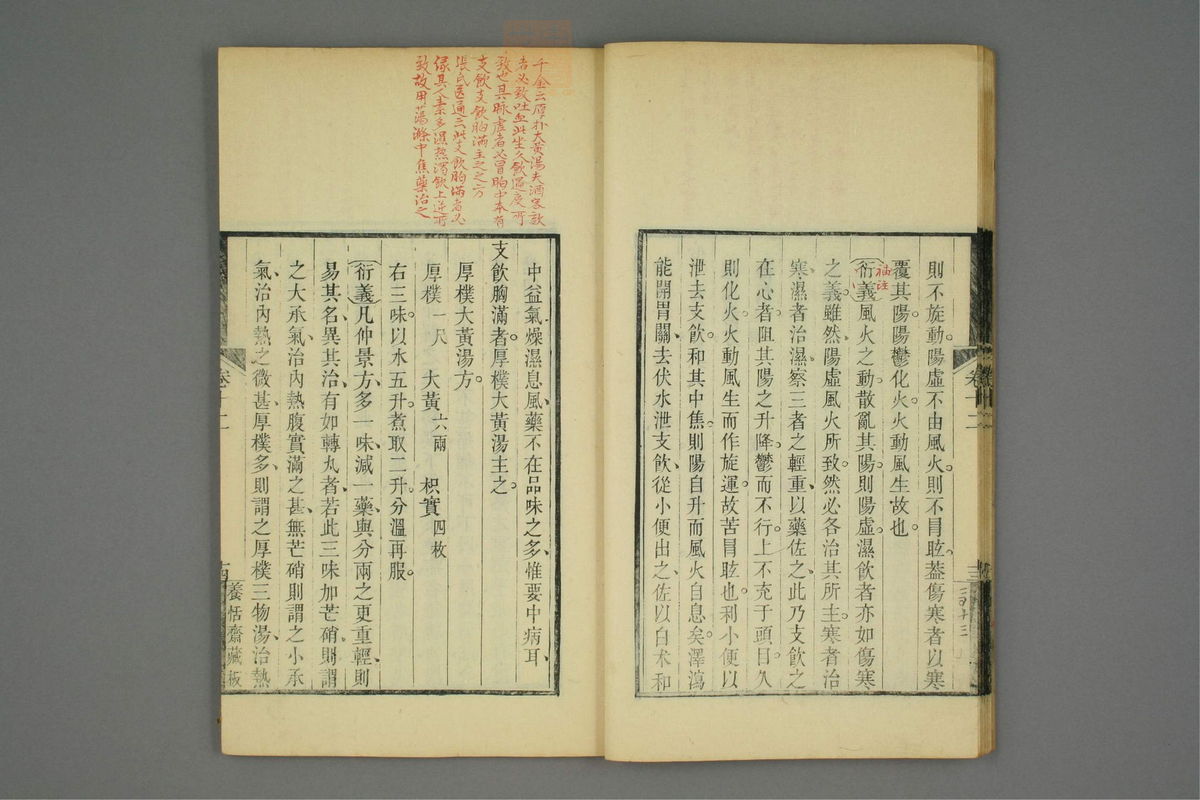 則不旋動。陽虛不由風火。則不冒眩。蓋傷寒者以寒
覆其陽。陽鬱化火。火動風生故也。
補註
衍義風火之動。散亂其陽。則陽虛。濕飲者亦如傷寒
之義。雖然。陽虛風火所致。然必各治其所主。寒者治
寒、濕者治濕、察三者之輕重、以藥佐之、此乃支飲之
在心者。阻其陽之升降。鬱而不行。上不充于頭目。久
則化火。火動風生而作旋運。故苦冒眩也。利小便以
泄去支飲。和其中焦。則陽自升而風火自息矣。澤瀉
能開胃關、去伏水泄支飲、從小便出之、佐以白朮和
卷十二
中益氣燥濕息風、藥不在品味之多、惟要中病耳、
支飲胸滿者。厚樸大黃湯主之。
厚樸大黃湯方。
厚樸一尺 大黃六兩 枳實四枚
右三味。以水五升。煮取二升。分溫再服。
衍義凡仲景方、多一味、減一藥、與分兩之更重輕、則
易其名、異其治、有如轉丸者、若此三味加芒硝、則謂
之大承氣、治內熱腹實滿之甚、無芒硝則謂之小承
氣、治內熱之微甚、厚樸多、則謂之厚樸三物湯、治熱
卷十二
十四
養恬齋藏板
千金云厚朴大黃湯夫酒客欬
者必致吐血此坐久飲過度所
致也其脉虛者必冒胸中本有
支飲支飲胸滿主之之方
張氏医通云此支飲胸滿者必
緣其人素多濕熱濁飲上逆所
致故用蕩滌中焦藥治之